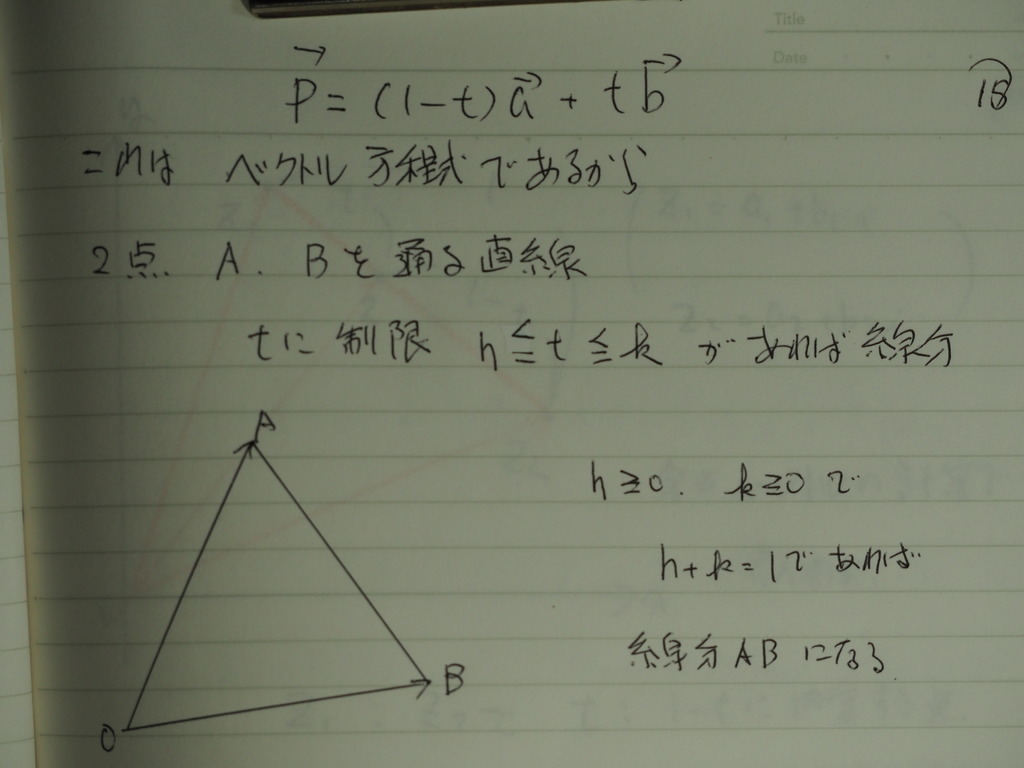 Title
Date
p⃗ = (1-t)a⃗ + t b⃗
⑱
これは ベクトル方程式であるから
2点. A. Bを通る直線
tに制限 h≦t≦k があれば線分
A
h≧0. k≧0で
h+k=1であれば
線分ABになる
B
O